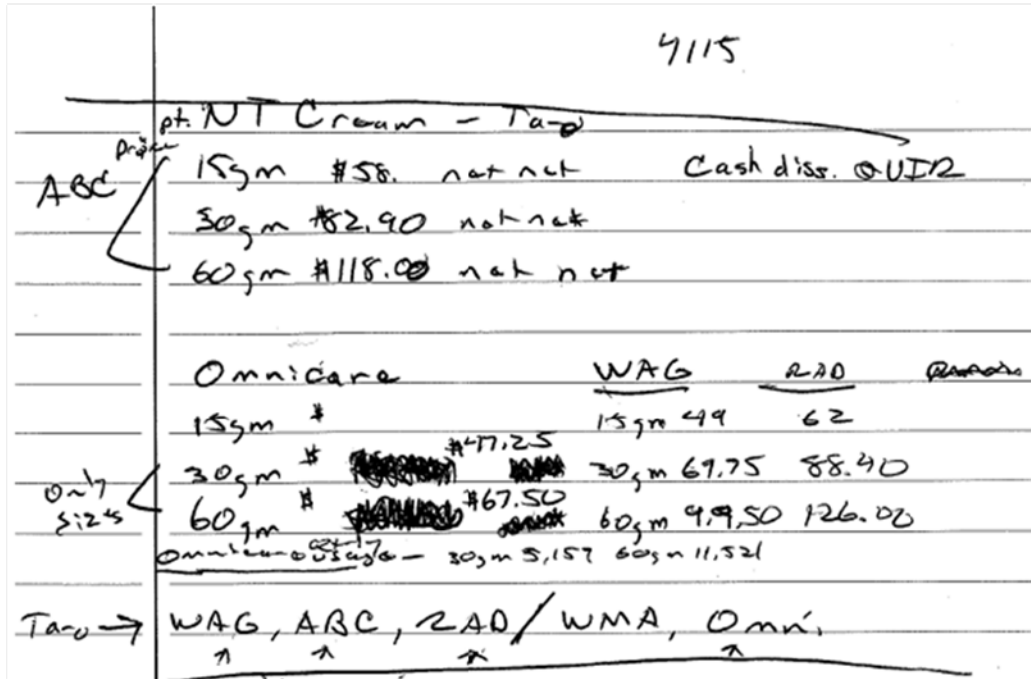 4115
pt. NT Cream - Taro
Price
ABC
15gm $58. net net Cash diss. QUIR
30gm $82.90 net net
60gm $118.00 net net
Omnicare WAG RAD
15gm $ 15gm 49 62
30gm $ $47.25 30gm 69.75 88.40
Only sizes
60gm $ $67.50 60gm 99.50 126.00
Omnicare usage - 30gm 5,157 60gm 11,521
Taro → WAG, ABC, RAD/WMA, Omni.